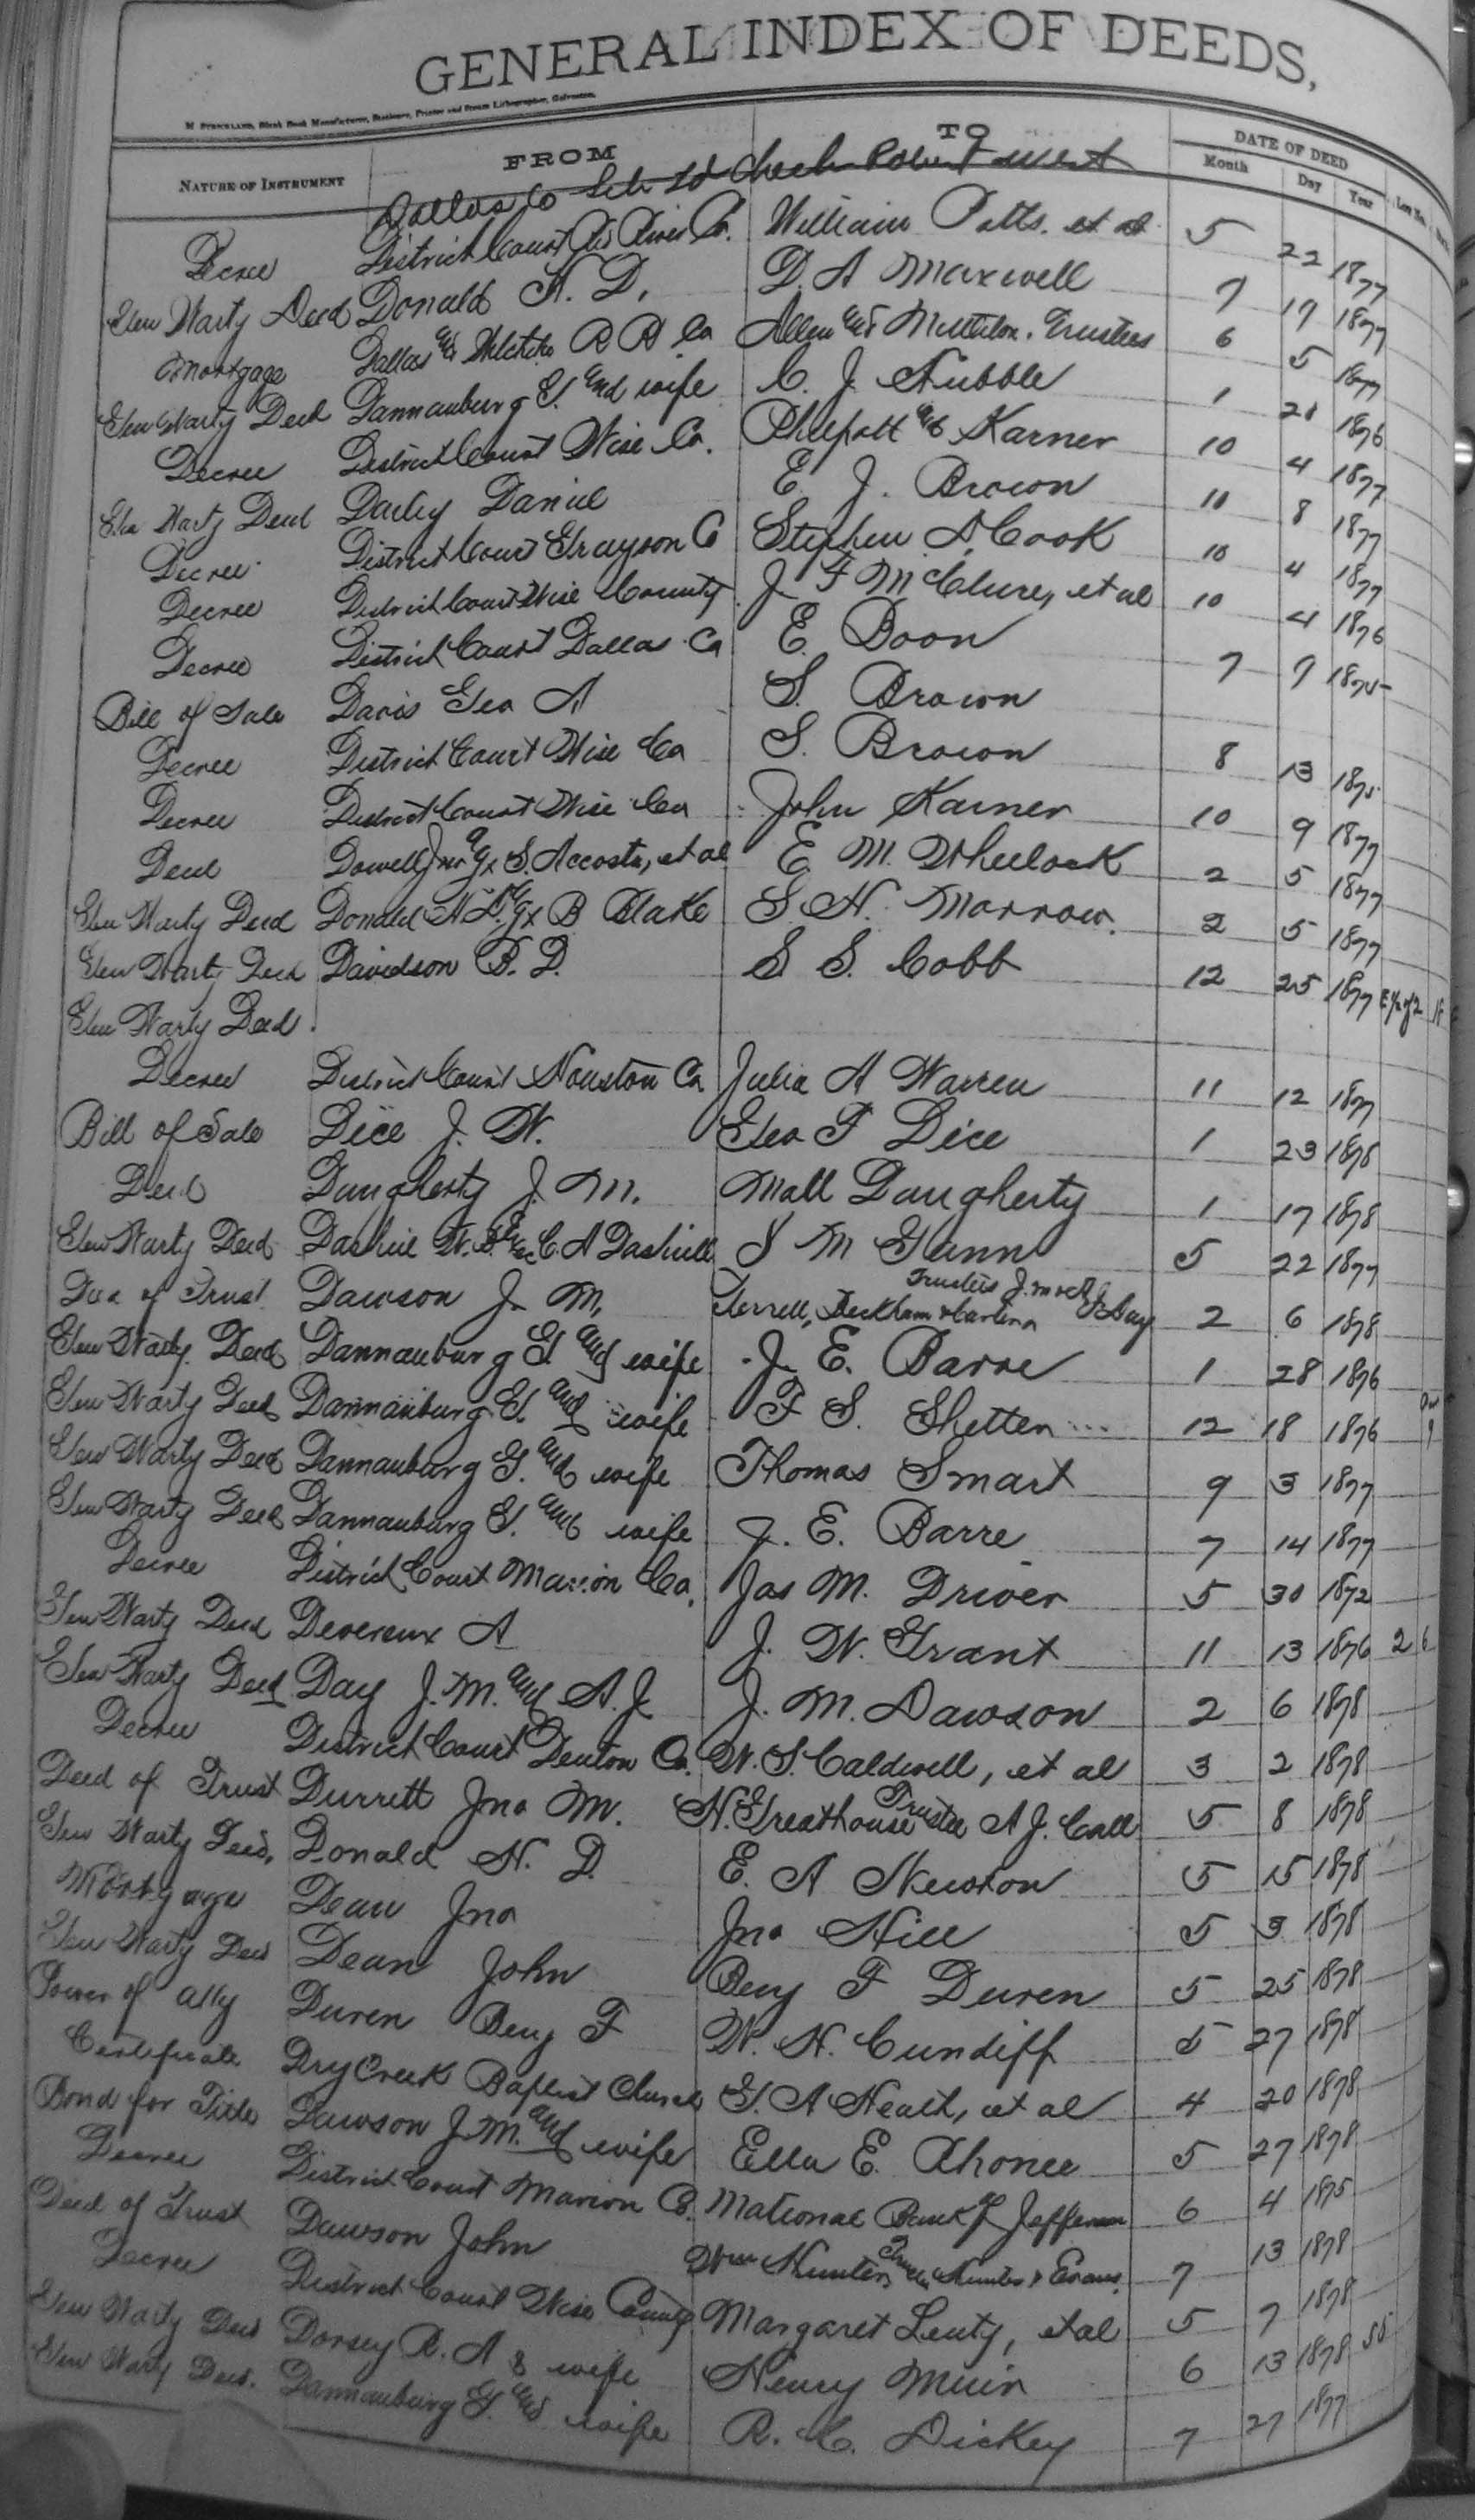 GENERAL INDEX OF DEEDS,
M. STRICKLAND, Blank Book Manufacturer, Stationer, Printer and Steam Lithographer, Galveston.
NATURE OF INSTRUMENT FROM TO DATE OF DEED
Month Day Year
Dallas Co Sch Ld Robert West
Decree District Court River Co. William Potts. et al 5 22 1877
Gen Warty Deed Donald H. D. D. A Maxwell 7 19 1877
Mortgage Dallas and Wichita R R Co Allen and Trustees 6 5 1877
Gen Warty Deed Dannauburg G. and wife C. J. Hubble 1 28 1876
Decree District Court Wise Co. Philpott and Karner 10 4 1877
Gen Warty Deed Daniel E. J. Brown 10 8 1877
Decree District Court Grayson Co Stephen A. Cook 10 4 1877
Decree District Court Wise County J F McClure, et al 10 4 1876
Decree District Court Dallas Co E. Boon 7 9 1875
Bill of Sale Davis Geo A S. Brown
Decree District Court Wise Co S. Brown 8 13 1875
Decree District Court Wise Co John Karner 10 9 1877
Deed Dowell Jno S. Accosta, et al E M. Wheelock 2 5 1877
Gen Warty Deed Donald H D. B Blake S. H. Morrow. 2 5 1877
Gen Warty Deed Davidson B. D. S. S. Cobb 12 25 1877 E½ of 2
Gen Warty Deed.
Decree District Court Houston Co Julia A Warren 11 12 1877
Bill of Sale Dice J. W. Geo F Dice 1 23 1878
Deed Daugherty J. M. Matt Daugherty 1 17 1878
Gen Warty Deed Dashiel W. B. C. A Dashiell M Gunn 5 22 1877
Dee of Trust Dawson J. M. Terrell, Peckham & Trustees J. M & A J Day 2 6 1878
Gen Warty Deed Dannauburg G. and wife J. E. Barre 1 28 1876
Gen Warty Deed Dannauburg G. and wife F S. Shetten 12 18 1876
Gen Warty Deed Dannauburg G. and wife Thomas Smart 9 3 1877
Gen Warty Deed Dannauburg G. and wife J. E. Barre 7 14 1877
Decree District Court Marion Co. Jas M. Driver 5 30 1872
Gen Warty Deed Devereux A J. W. Grant 11 13 1876 2 6
Gen Warty Deed Day J. M. and A. J. J. M. Dawson 2 6 1878
Decree District Court Denton Co. W. S. Caldwell, et al 3 2 1878
Deed of Trust Durrett Jno M. H. Greathouse Trustee A J. Call 5 8 1878
Gen Warty Deed, Donald H. D. E. A Newton 5 15 1878
Mortgage Dean Jno Jno Hill 5 3 1878
Gen Warty Deed Dean John Benj F Duren 5 25 1878
Power of Atty Duren Benj F W. H. Cundiff 5 27 1878
Certificate Dry Creek Baptist Church G. A Heath, et al 4 20 1878
Bond for Title Dawson J. M. and wife Ella E. Rhonee 5 27 1878
Decree District Court Marion Co. National Bank of Jefferson 6 4 1875
Deed of Trust Dawson John Wm Hunter, Trustee Hunter & Evans. 7 13 1878
Decree District Court Wise County Margaret Lenty, et al 5 7 1878
Gen Warty Deed Dorsey R. A & wife Henry Muir 6 13 1878 55
Gen Warty Deed. Dannauburg G. and wife R. C. Dickey 7 27 1877